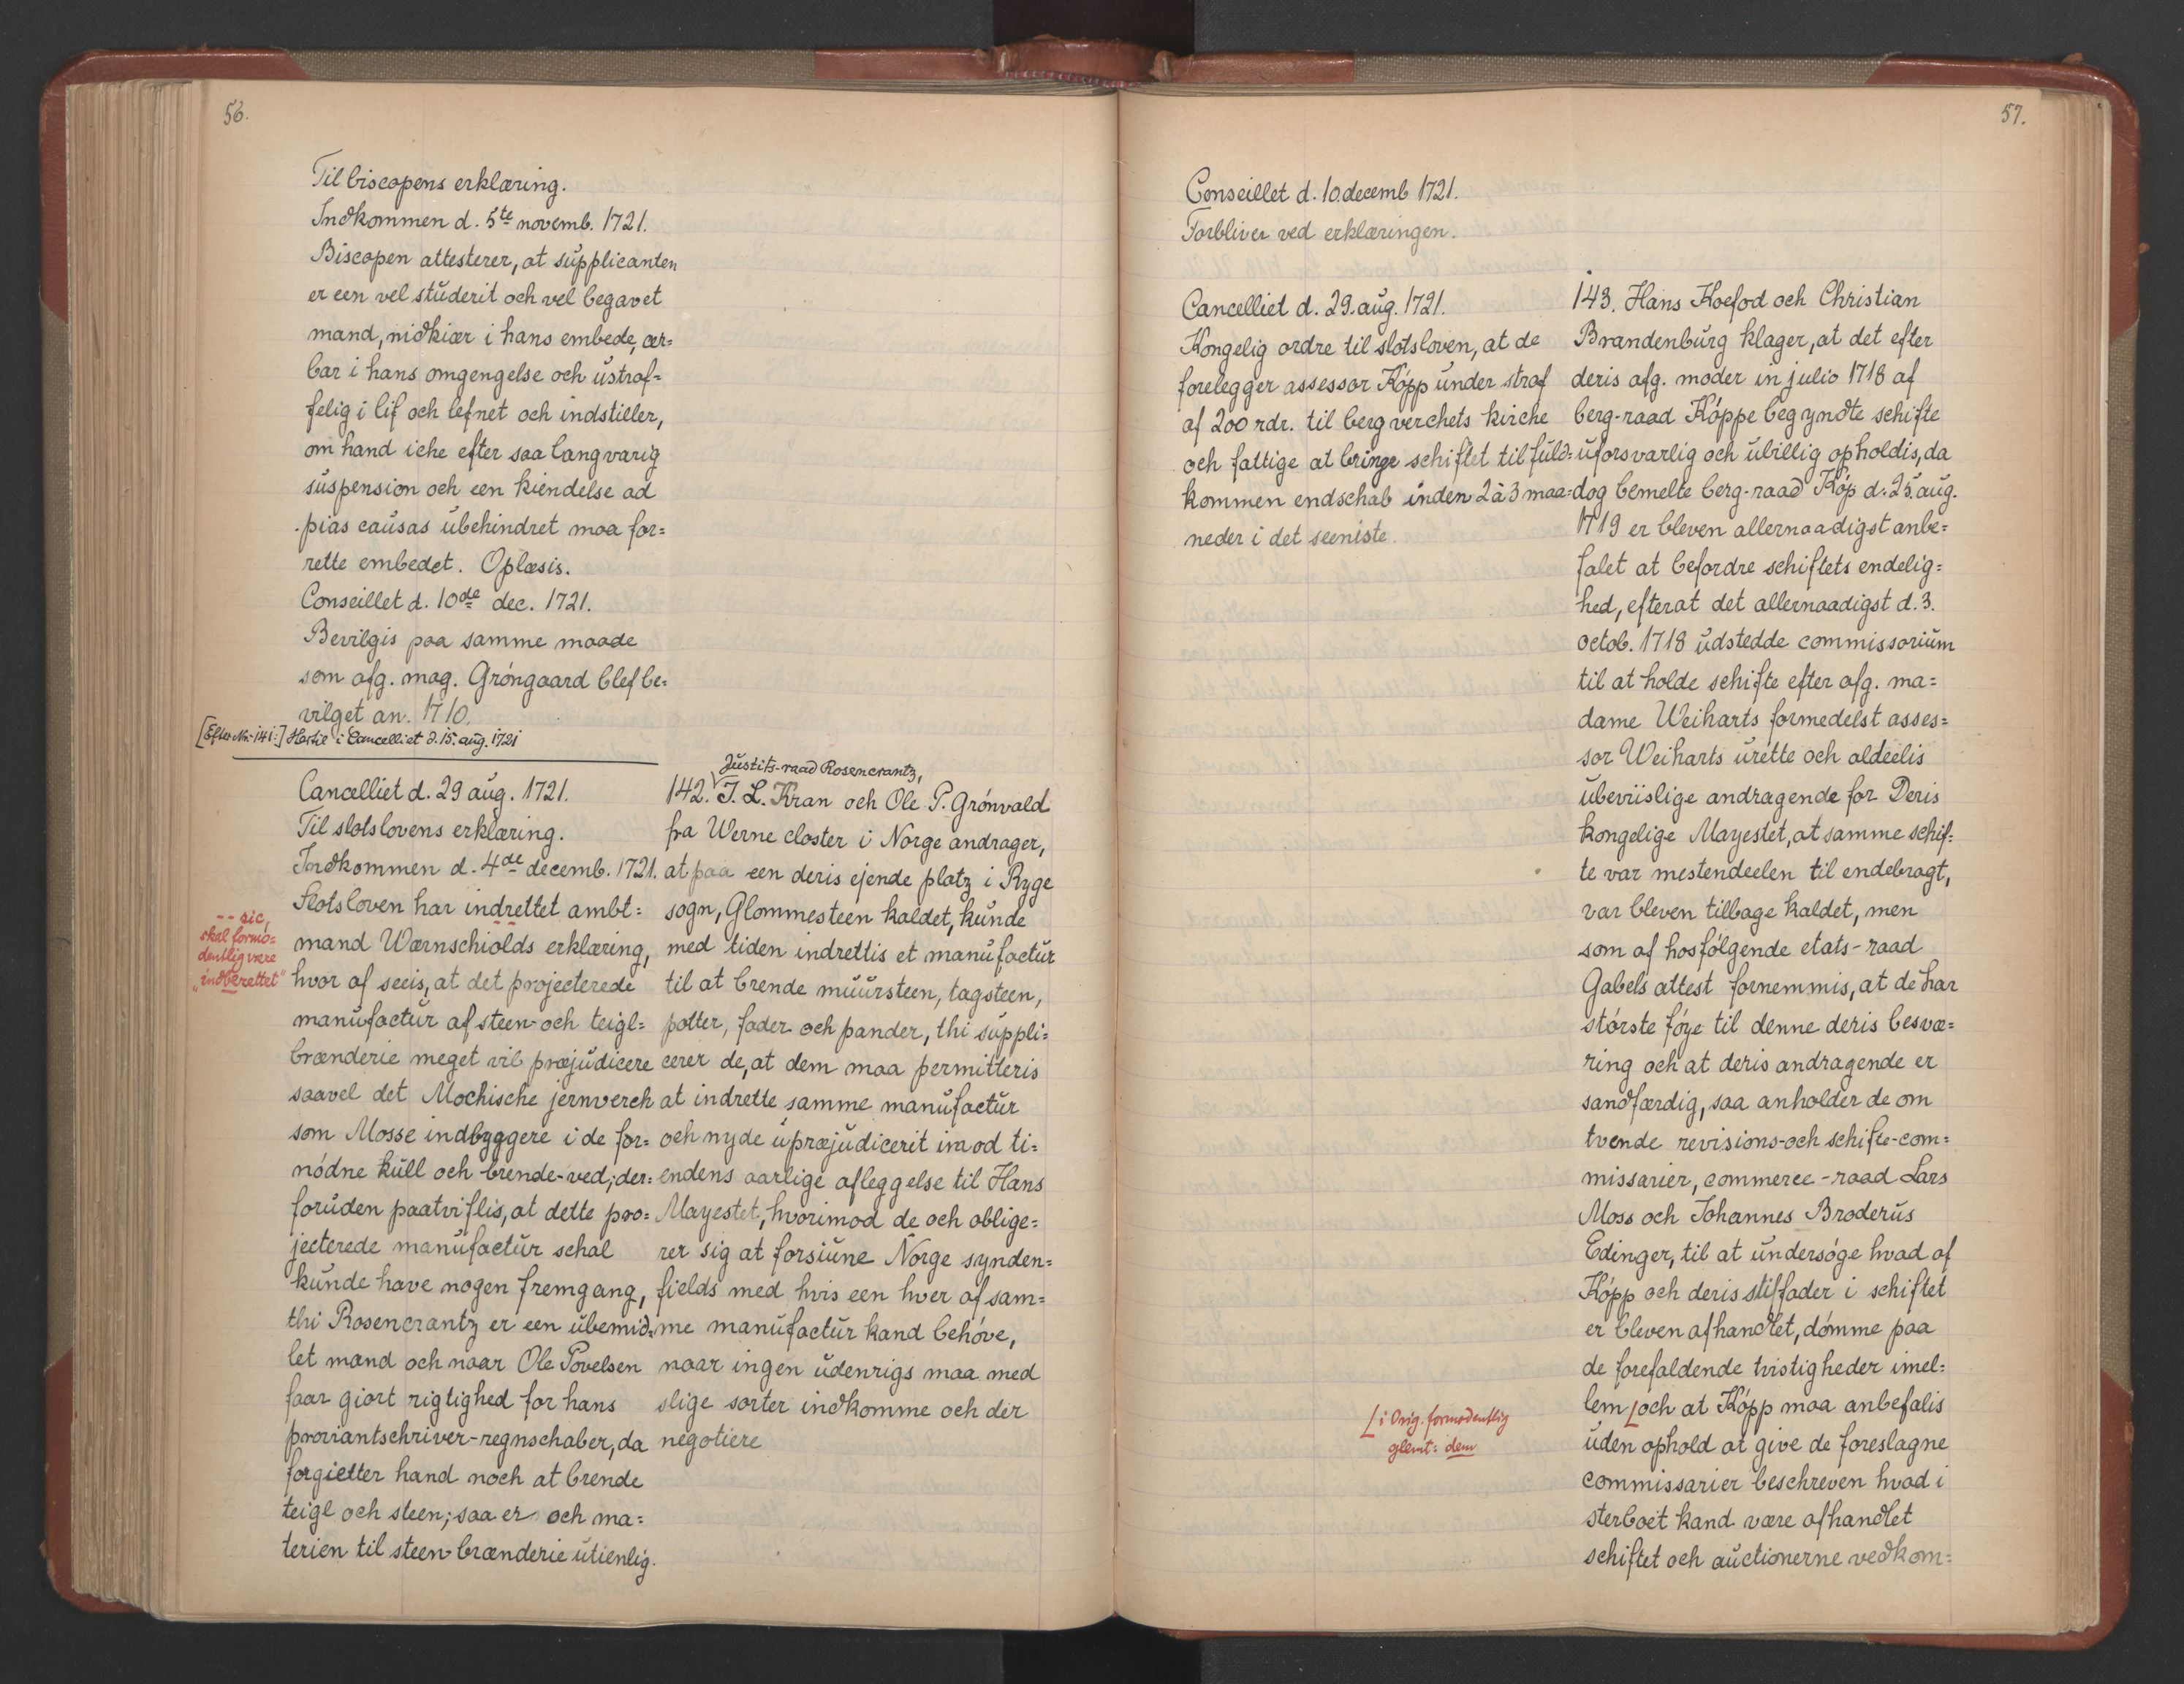 56.
Til biscopens erklæring.
Indkommen d. 5te novemb. 1721.
Biscopen attesterer, at supplicanten
er een vel studerit och vel begavet
mand, nidkiær i hans embede, ær=
bar i hans omgengelse och ustraf=
felig i lif och lefnet och indstiller,
om hand iche efter saa langvarig
suspension och een kiendelse ad
pias causas ubehindret maa for=
rette embedet. Oplæsis.
Conseillet d. 10de dec. 1721.
Bevilgis paa samme maade
som afg. mag. Gróngaard blef be=
vilget an. 1710.
[Efter Nr. 141:] Hertil i Cancelliet d. 15. aug. 1721
Cancelliet d. 29 aug. 1721.
Til slotslovens erklæring.
Indkommen d. 4de decemb. 1721.
Slotsloven har indrettet ambt=
mand Wærnschiolds erklæring,
hvor af seeis, at det projecterede
manufactur af steen och teigl=
brænderie meget vil præjudicere
saavel det Mochische jernverch
som Mosse indbyggere i de for=
nódne kull och brende-ved; der=
foruden paatviflis, at dette pro=
jecterede manufactur schal
kunde have nogen fremgang,
thi Rosencrantz er een ubemid=
let mand och naar Ole Povelsen
faar giort rigtighed for hans
proviantschriver-regnschaber, da
forgietter hand noch at brende
teigl och steen; saa er och ma=
terien til steen brænderie utienlig.
-- sic,
skal formo=
dentlig være
"indberettet"
Justits-raad Rosencrantz,
142. J. L. Kran och Ole P. Grónvald
fra Werne closter i Norge andrager,
at paa een deris ejende platz i Ryge
sogn, Glommesteen kaldet, kunde
med tiden indrettis et manufactur
til at brende muursteen, tagsteen,
potter, fader och pander, thi suppli=
cerer de, at dem maa permitteris
at indrette samme manufactur
och nyde upræjudicerit imod ti=
endens aarlige afleggelse til Hans
Mayestet, hvorimod de och oblige=
rer sig at forsiune Norge synden=
fields med hvis een hver af sam=
me manufactur kand behóve,
naar ingen udenrigs maa med
slige sorter indkomme och der
negotiere
57.
Conseillet d. 10 decemb 1721.
Forbliver ved erklæringen.
Cancelliet d. 29. aug. 1721.
Kongelig ordre til slotsloven, at de
forelegger assessor Kópp under straf
af 200 rdr. til berg verchets kirche
och fattige at bringe schiftet til fuld=
kommen endschab inden 2 à 3 maa=
neder i det seeniste.
143. Hans Koefod och Christian
Brandenburg klager, at det efter
deris afg. moder in julio 1718 af
berg-raad Kóppe begyndte schifte
uforsvarlig och ubillig opholdis, da
dog bemelte berg-raad Kóp d. 25. aug.
1719 er bleven allernaadigst anbe=
falet at befordre schiftets endelig=
hed, efterat det allernaadigst d. 3.
octob. 1718 udstedde commissorium
til at holde schifte efter afg. ma=
dame Weiharts formedelst asses=
sor Weiharts urette och aldeelis
ubeviislige andragende for Deris
kongelige Mayestet, at samme schif=
te var mestendeelen til endebragt,
var bleven tilbage kaldet, men
som af hosfólgende etats-raad
Gabels attest fornemmis, at de har
stórste fóye til denne deris besvæ=
ring och at deris andragende er
sandfærdig, saa anholder de om
tvende revisions- och schifte-com=
missarier, commerce-raad Lars
Moss och Johannes Broderus
Edinger, til at undersóge hvad af
Kópp och deris stiffader i schiftet
er bleven afhandlet, dómme paa
de forefaldende tvistigheder imel=
lem [och at Kópp maa anbefalis
uden ophold at give de foreslagne
commissarier beschreven hvad i
sterboet kand være afhandlet
schiftet och auctionerne vedkom=
[i Orig. formodentlig
glemt: dem